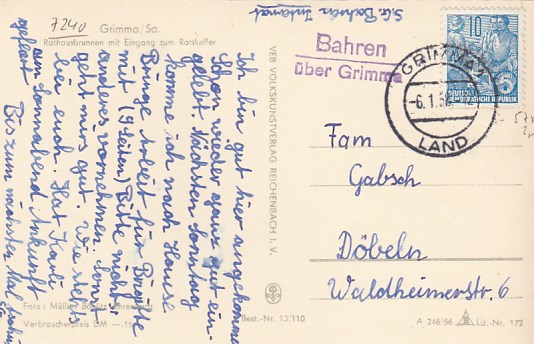 7240
Grimma/Sa.
Rathausbrunnen mit Eingang zum Ratskeller
Ich bin gut hier angekommen
schon wieder ganz gut ein-
gelebt. Nächsten Sonntag
komme ich nach Hause
Bringe Arbeit für Brigitte
mit (9 Seiten) Bitte nichts
anderes vornehmen. Sonst
geht mirs gut. Wie stehts
bei euch. Hat Karli
am Sonnabend Ankunft
gefeiert
Bis zum nächsten Mal
Foto: Müller
Verbraucherpreis DM —.15
Best.-Nr. 13/110
VEB VOLKSKUNSTVERLAG REICHENBACH I. V.
Bahren
über Grimma
GRIMMA
-6.1.
LAND
10
DEUTSCHE
DEMOKRATISCHE REPUBLIK
Fam
Gabsch
Döbeln
Waldheimerstr. 6
A 246/56
Liz.-Nr. 172